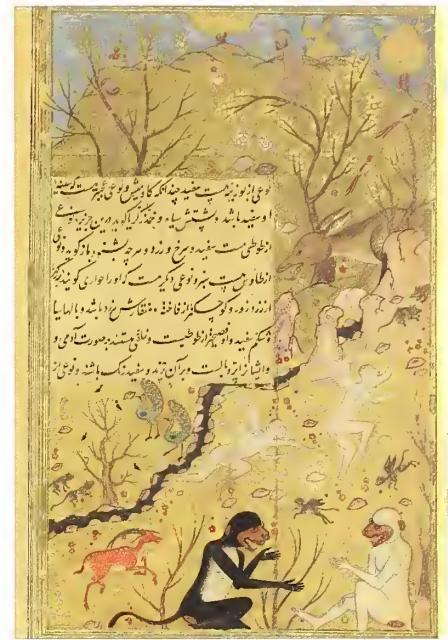 نوعی از بوزینه است سفید چندانکه گاومیش و نوعی دیگر است که سینه
او سفید باشد و پشتش سیاه و در این جزیره
از طوطی هست سفید و سرخ و زرد و هر چه بشنود باز گوید و نوعی
از طاوس هست سبز و نوعی دیگر است که او را حواری گویند بزرگتر
از زرزور و کوچکتر از فاخته منقارش زرد باشد و بالها سیاه
و شکم سفید و او فصیح‌تر از طوطیست و خلقی هستند بصورت آدمی و
ایشان را پرهاست و بر آن پرند و سفید رنگ باشند و نوعی از